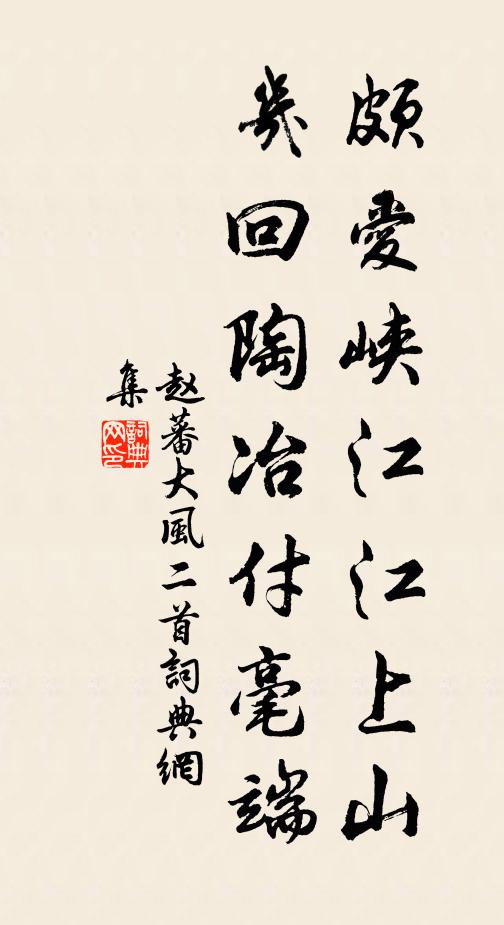 頗愛峽江江上山
幾回陶冶付毫端
赵蕃大風二首詞典網
集
詞典
网印